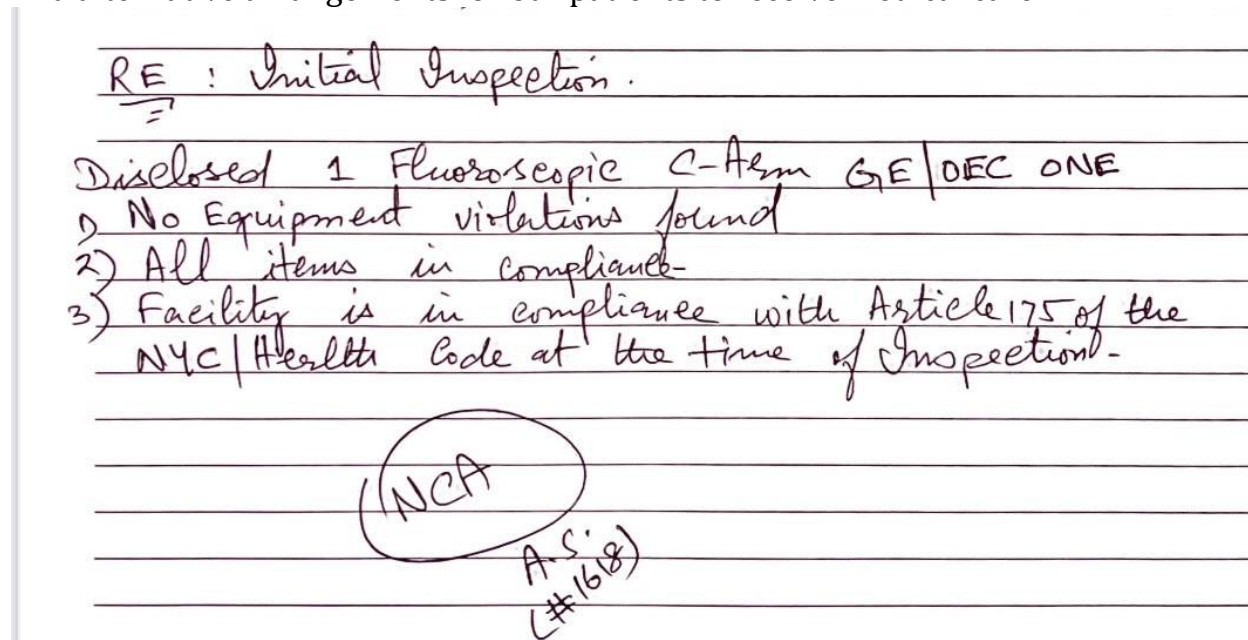 RE : Initial Inspection.
Disclosed 1 Fluoroscopic C-Arm GE/OEC ONE
1) No Equipment violations found
2) All items in compliance-
3) Facility is in compliance with Article 175 of the
NYC/Health Code at the time of Inspection-
NCA
A.S.
(#1618)